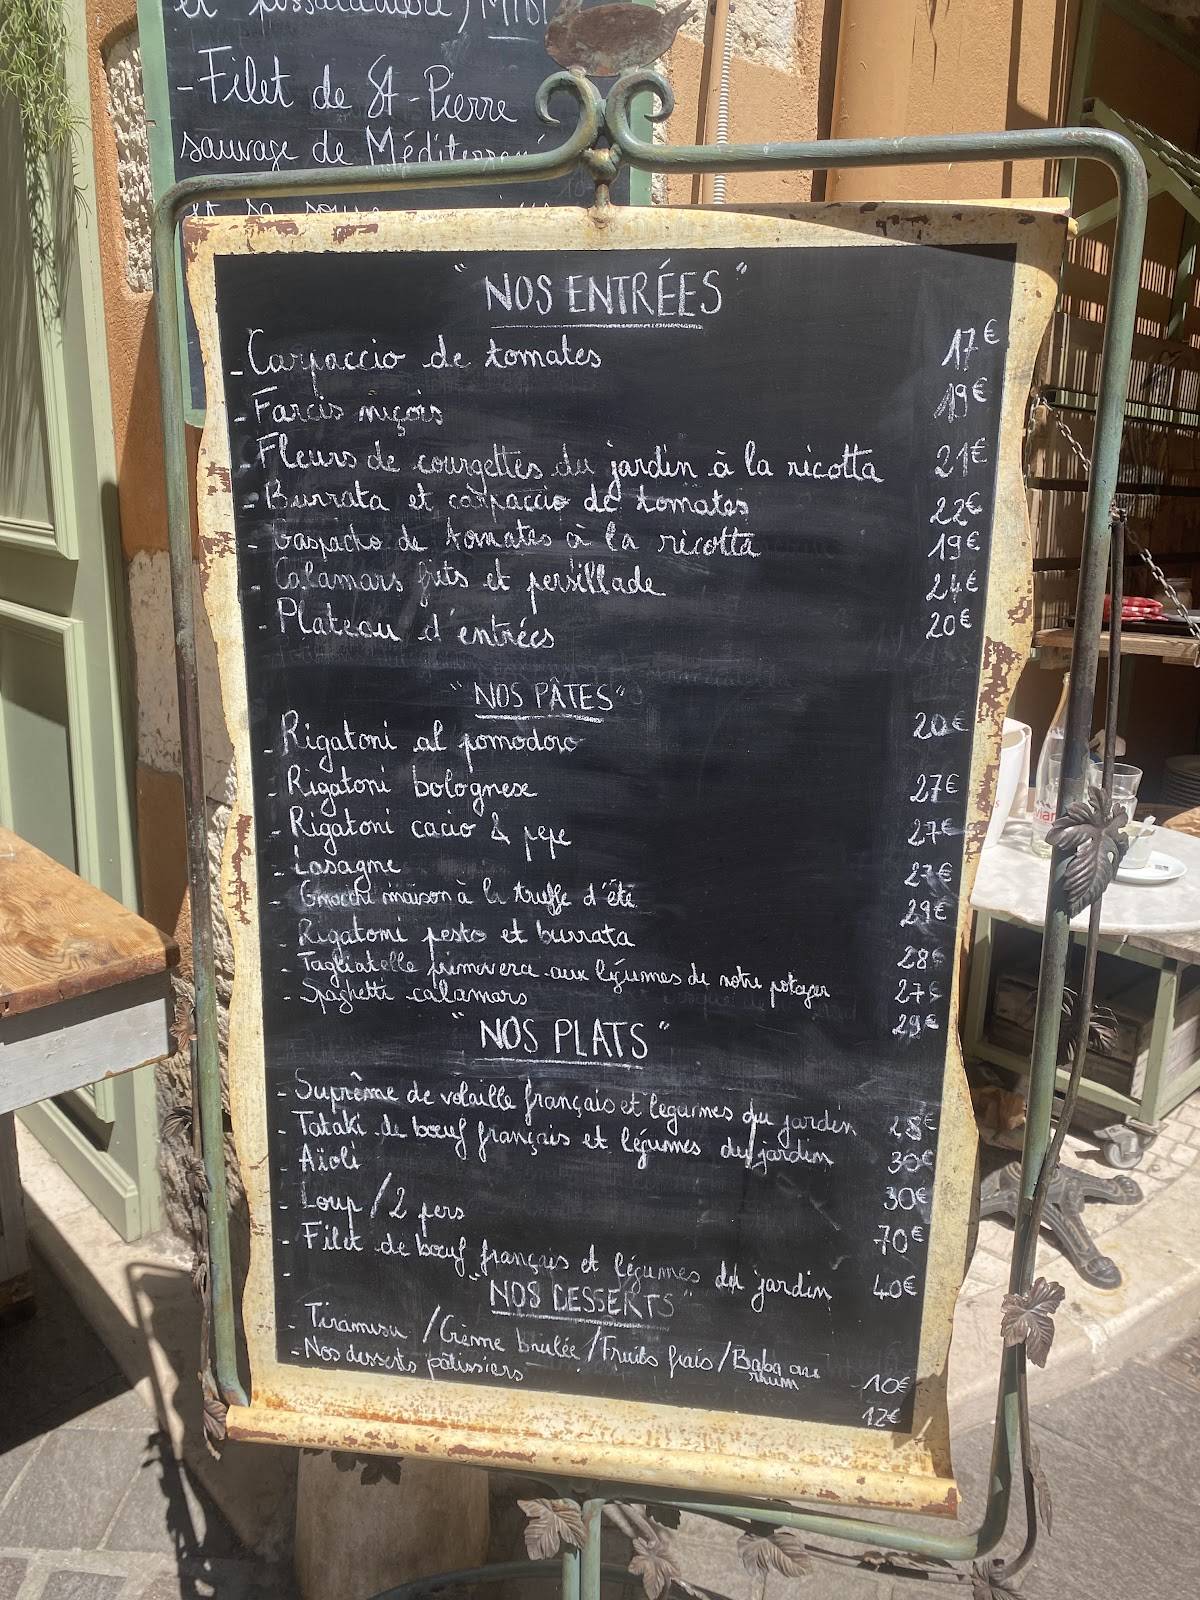 et possibilité MIDI
- Filet de St-Pierre
sauvage de Méditerranée
et sa
" NOS ENTRÉES "
- Carpaccio de tomates 17€
- Farcis niçois 19€
- Fleurs de courgettes du jardin à la ricotta 21€
- Burrata et carpaccio de tomates 22€
- Gaspacho de tomates à la ricotta 19€
- Calamars frits et persillade 24€
- Plateau d'entrées 20€
" NOS PÂTES "
- Rigatoni al pomodoro 20€
- Rigatoni bolognese 27€
- Rigatoni cacio & pepe 27€
- Lasagne 27€
- Gnocchi maison à la truffe d'été 29€
- Rigatoni pesto et burrata 28€
- Tagliatelle primavera aux légumes de notre potager 27€
- Spaghetti calamars 29€
" NOS PLATS "
- Suprême de volaille français et légumes du jardin 28€
- Tataki de bœuf français et légumes du jardin 30€
- Aïoli 30€
- Loup / 2 pers 70€
- Filet de bœuf français et légumes du jardin 40€
-
" NOS DESSERTS "
- Tiramisu / Crème brulée / Fruits frais / Baba au rhum 10€
- Nos desserts pâtissiers 12€
evian